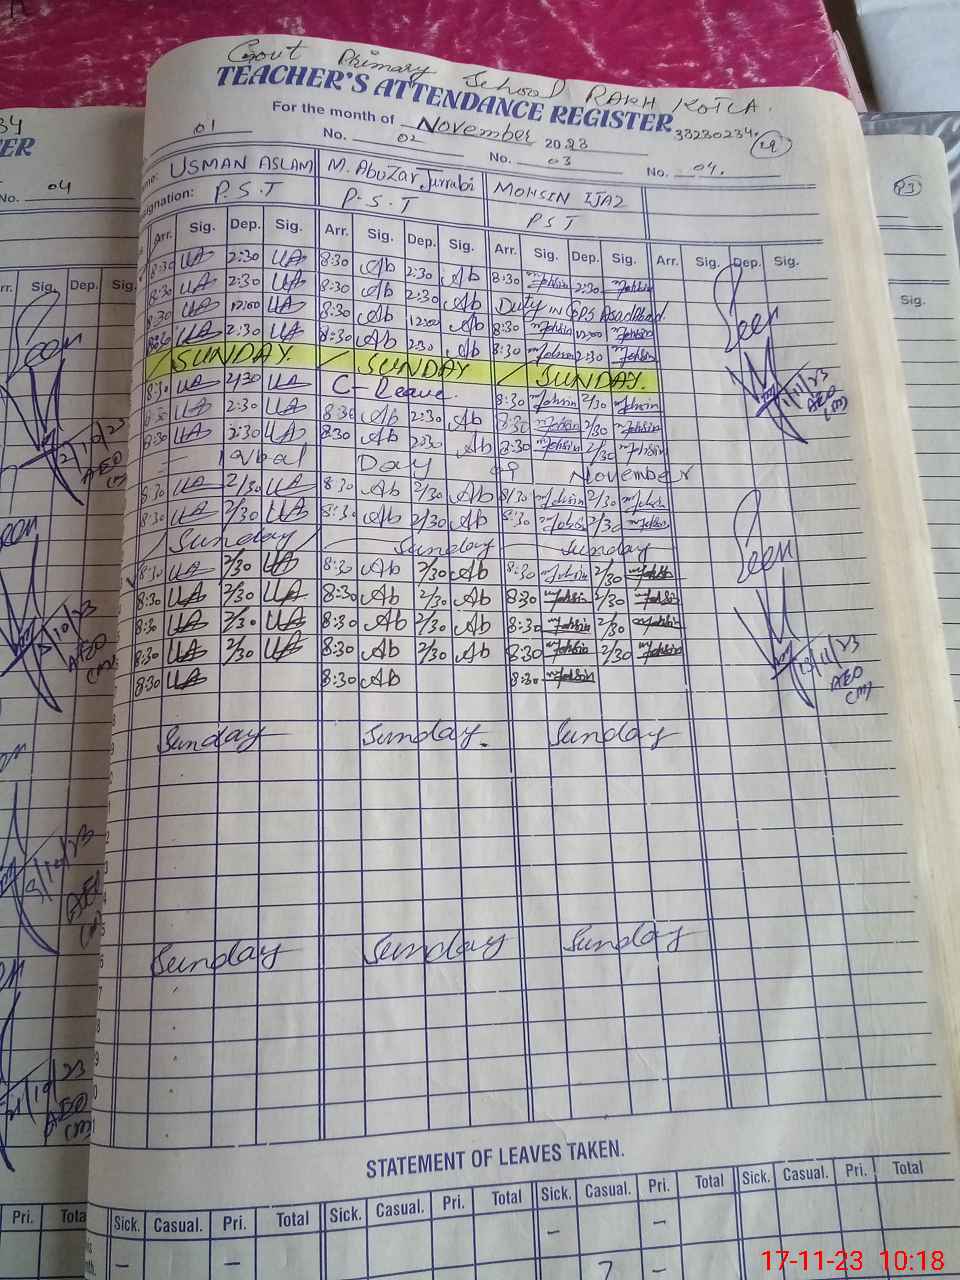 Govt Primary School RAKH KOTLA.
TEACHER'S ATTENDANCE REGISTER
For the month of November 2023 33230234
01 No. 02 No. 03 No. 04.
USMAN ASLAM M. Abuzar Jurrabi MOHSIN IJAZ
signation: P.S.T P.S.T PST
Arr. Sig. Dep. Sig. Arr. Sig. Dep. Sig. Arr. Sig. Dep. Sig. Arr. Sig. Dep. Sig.
8:30 UA 2:30 UA 8:30 Ab 2:30 Ab 8:30 Mohsin 2:30 Mohsin
8:30 UA 2:30 UA 8:30 Ab 2:30 Ab Duty in GPS
8:30 UA 12:00 UA 8:30 Ab 12:00 Ab 8:30 Mohsin 12:00 Mohsin
8:30 UA 2:30 UA 8:30 Ab 2:30 Ab 8:30 Mohsin 2:30 Mohsin
SUNDAY SUNDAY SUNDAY.
8:30 UA 2:30 UA C-Leave. 8:30 Mohsin 2/30 Mohsin
8:30 UA 2:30 UA 8:30 Ab 2:30 Ab 8:30 Mohsin 2/30 Mohsin
8:30 UA 2:30 UA 8:30 Ab 2:30 Ab 8:30 Mohsin 2/30 Mohsin
Iqbal Day 09 November
8:30 UA 2/30 UA 8:30 Ab 2/30 Ab 8/30 Mohsin 2/30 Mohsin
8:30 UA 2/30 UA 8:30 Ab 2/30 Ab 8:30 Mohsin 2/30 Mohsin
Sunday Sunday Sunday
8:30 UA 2/30 UA 8:30 Ab 2/30 Ab 8:30 Mohsin 2/30 Mohsin
8:30 UA 2/30 UA 8:30 Ab 2/30 Ab 8:30 Mohsin 2/30 Mohsin
8:30 UA 2/30 UA 8:30 Ab 2/30 Ab 8:30 Mohsin 2/30 Mohsin
8:30 UA 2/30 UA 8:30 Ab 2/30 Ab 8:30 Mohsin 2/30 Mohsin
8:30 UA 8:30 Ab 8:30 Mohsin
Sunday Sunday. Sunday
Sunday Sunday Sunday
Seen
AEO
(M)
Seen
AEO
(M)
STATEMENT OF LEAVES TAKEN.
Sick. Casual. Pri. Total Sick. Casual. Pri. Total Sick. Casual. Pri. Total Sick. Casual. Pri. Total
34
ER
No. 04
rr. Sig. Dep. Sig.
Seen
AEO
(M)
Pri. Tota
Sig.
17-11-23 10:18